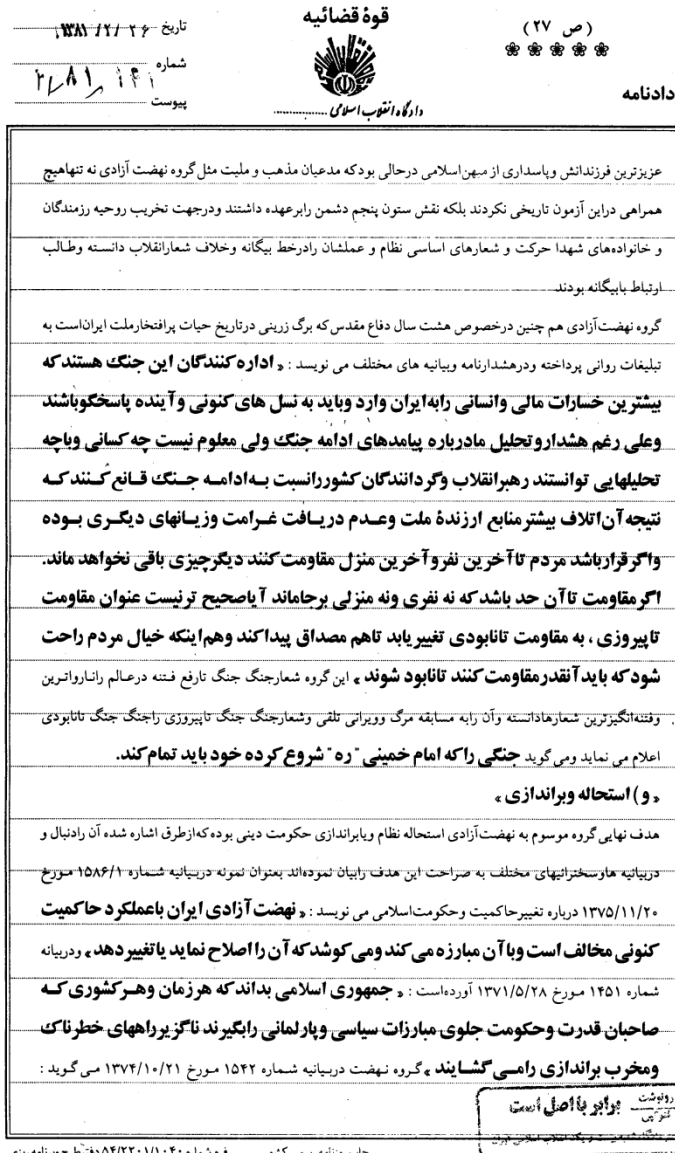 ( ص ۲۷ )
قوهٔ قضائیه
تاریخ ۱۳۸۱/۲/۲۶
شماره
پیوست
دادگاه انقلاب اسلامی
دادنامه
عزیزترین فرزندانش وپاسداری از میهن‌اسلامی درحالی بودکه مدعیان مذهب و ملیت مثل‌گروه نهضت آزادی نه تنهاهیچ
همراهی دراین آزمون تاریخی نکردند بلکه نقش ستون پنجم دشمن رابرعهده داشتند ودرجهت تخریب روحیه رزمندگان
و خانواده‌های شهدا حرکت و شعارهای اساسی نظام و عملشان رادرخط بیگانه وخلاف شعارانقلاب دانسته وطالب
ارتباط بابیگانه بودند
گروه نهضت‌آزادی هم چنین درخصوص هشت سال دفاع مقدس‌که برگ زرینی درتاریخ حیات پرافتخارملت ایران‌است به
تبلیغات روانی پرداخته ودرهشدارنامه وبیانیه های مختلف می نویسد : « اداره‌کنندگان این جنگ هستندکه
بیشترین خسارات مالی وانسانی رابه‌ایران وارد وباید به نسل های‌کنونی وآینده پاسخگوباشند
وعلی رغم هشداروتحلیل مادرباره پیامدهای ادامه جنگ ولی معلوم نیست چه‌کسانی وباچه
تحلیلهایی توانستند رهبرانقلاب وگردانندگان کشوررانسبت به‌ادامه جنگ قانع کنندکه
نتیجه‌آن‌اتلاف بیشترمنابع ارزندهٔ ملت وعدم دریافت غرامت وزیانهای دیگری بوده
واگرقرارباشد مردم تاآخرین نفروآخرین منزل مقاومت‌کنند دیگرچیزی باقی نخواهد ماند.
اگرمقاومت تاآن حد باشدکه نه نفری ونه منزلی برجاماند آیاصحیح ترنیست عنوان مقاومت
تاپیروزی ، به مقاومت تانابودی تغییریابد تاهم مصداق پیداکند وهم‌اینکه خیال مردم راحت
شودکه بایدآنقدرمقاومت‌کنند تانابود شوند » این گروه شعارجنگ جنگ تارفع فتنه درعالم راناروا‌ترین
وفتنه‌انگیزترین شعارهادانسته وآن رابه مسابقه مرگ وویرانی تلقی وشعارجنگ جنگ تاپیروزی راجنگ جنگ تانابودی
اعلام می نماید ومی‌گوید جنگی راکه امام خمینی "ره" شروع‌کرده خود باید تمام‌کند.
« و ) استحاله وبراندازی »
هدف نهایی‌گروه موسوم به نهضت‌آزادی استحاله نظام ویابراندازی حکومت دینی بوده‌که‌ازطرق اشاره شده آن رادنبال و
دربیانیه هاوسخنرانیهای مختلف به صراحت این هدف رابیان نموده‌اند بعنوان نمونه دربیانیه شماره ۱۵۸۶/۱ مورخ
۱۳۷۵/۱۱/۲۰ درباره تغییرحاکمیت وحکومت‌اسلامی می نویسد : « نهضت‌آزادی ایران باعملکرد حاکمیت
کنونی مخالف است وباآن مبارزه می‌کند ومی‌کوشدکه آن رااصلاح نماید یاتغییردهد» ودربیانه
شماره ۱۴۵۱ مورخ ۱۳۷۱/۵/۲۸ آورده‌است : « جمهوری اسلامی بداندکه هرزمان وهرکشوری‌که
صاحبان قدرت وحکومت جلوی مبارزات سیاسی وپارلمانی رابگیرند ناگزیرراههای خطرناک
ومخرب براندازی رامی‌گشایند » گروه نهضت دربیانیه شماره ۱۵۴۲ مورخ ۱۳۷۴/۱۰/۲۱ می‌گوید :
رونوشت برابر بااصل است